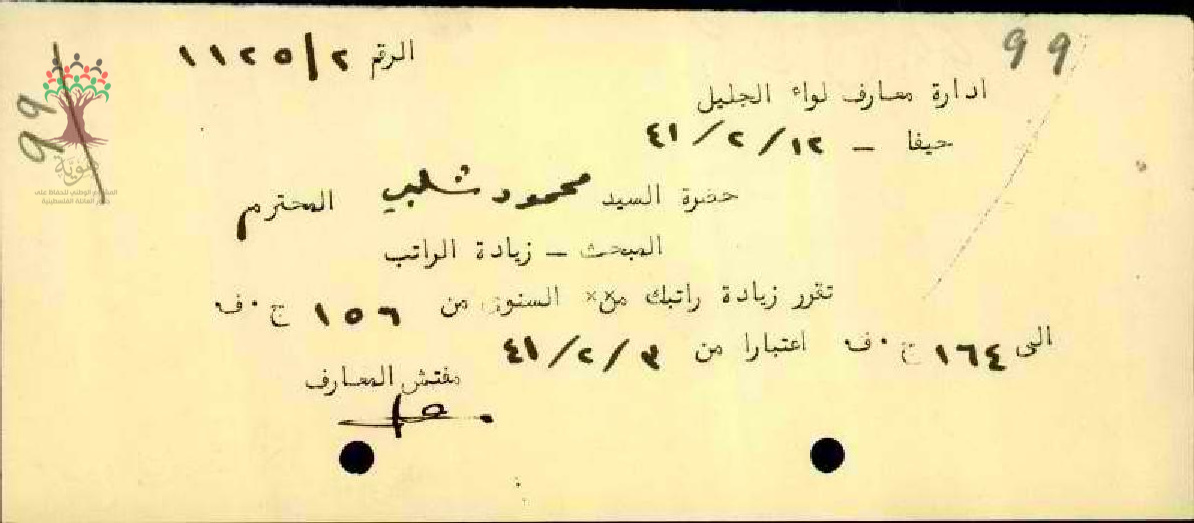 99
الرقم ١١٢٥/٢
99
ادارة معارف لواء الجليل
حيفا - ٤١/٢/١٢
حضرة السيد محمود شلبي المحترم
المبحث - زيادة الراتب
تقرر زيادة راتبك من×× السنوي من ١٥٦ ج٠ف
الى ١٦٤ ج٠ف اعتبارا من ٤١/٢/٣
مفتش المعارف
هويّة
المشروع الوطني للحفاظ على
جذور العائلة الفلسطينية